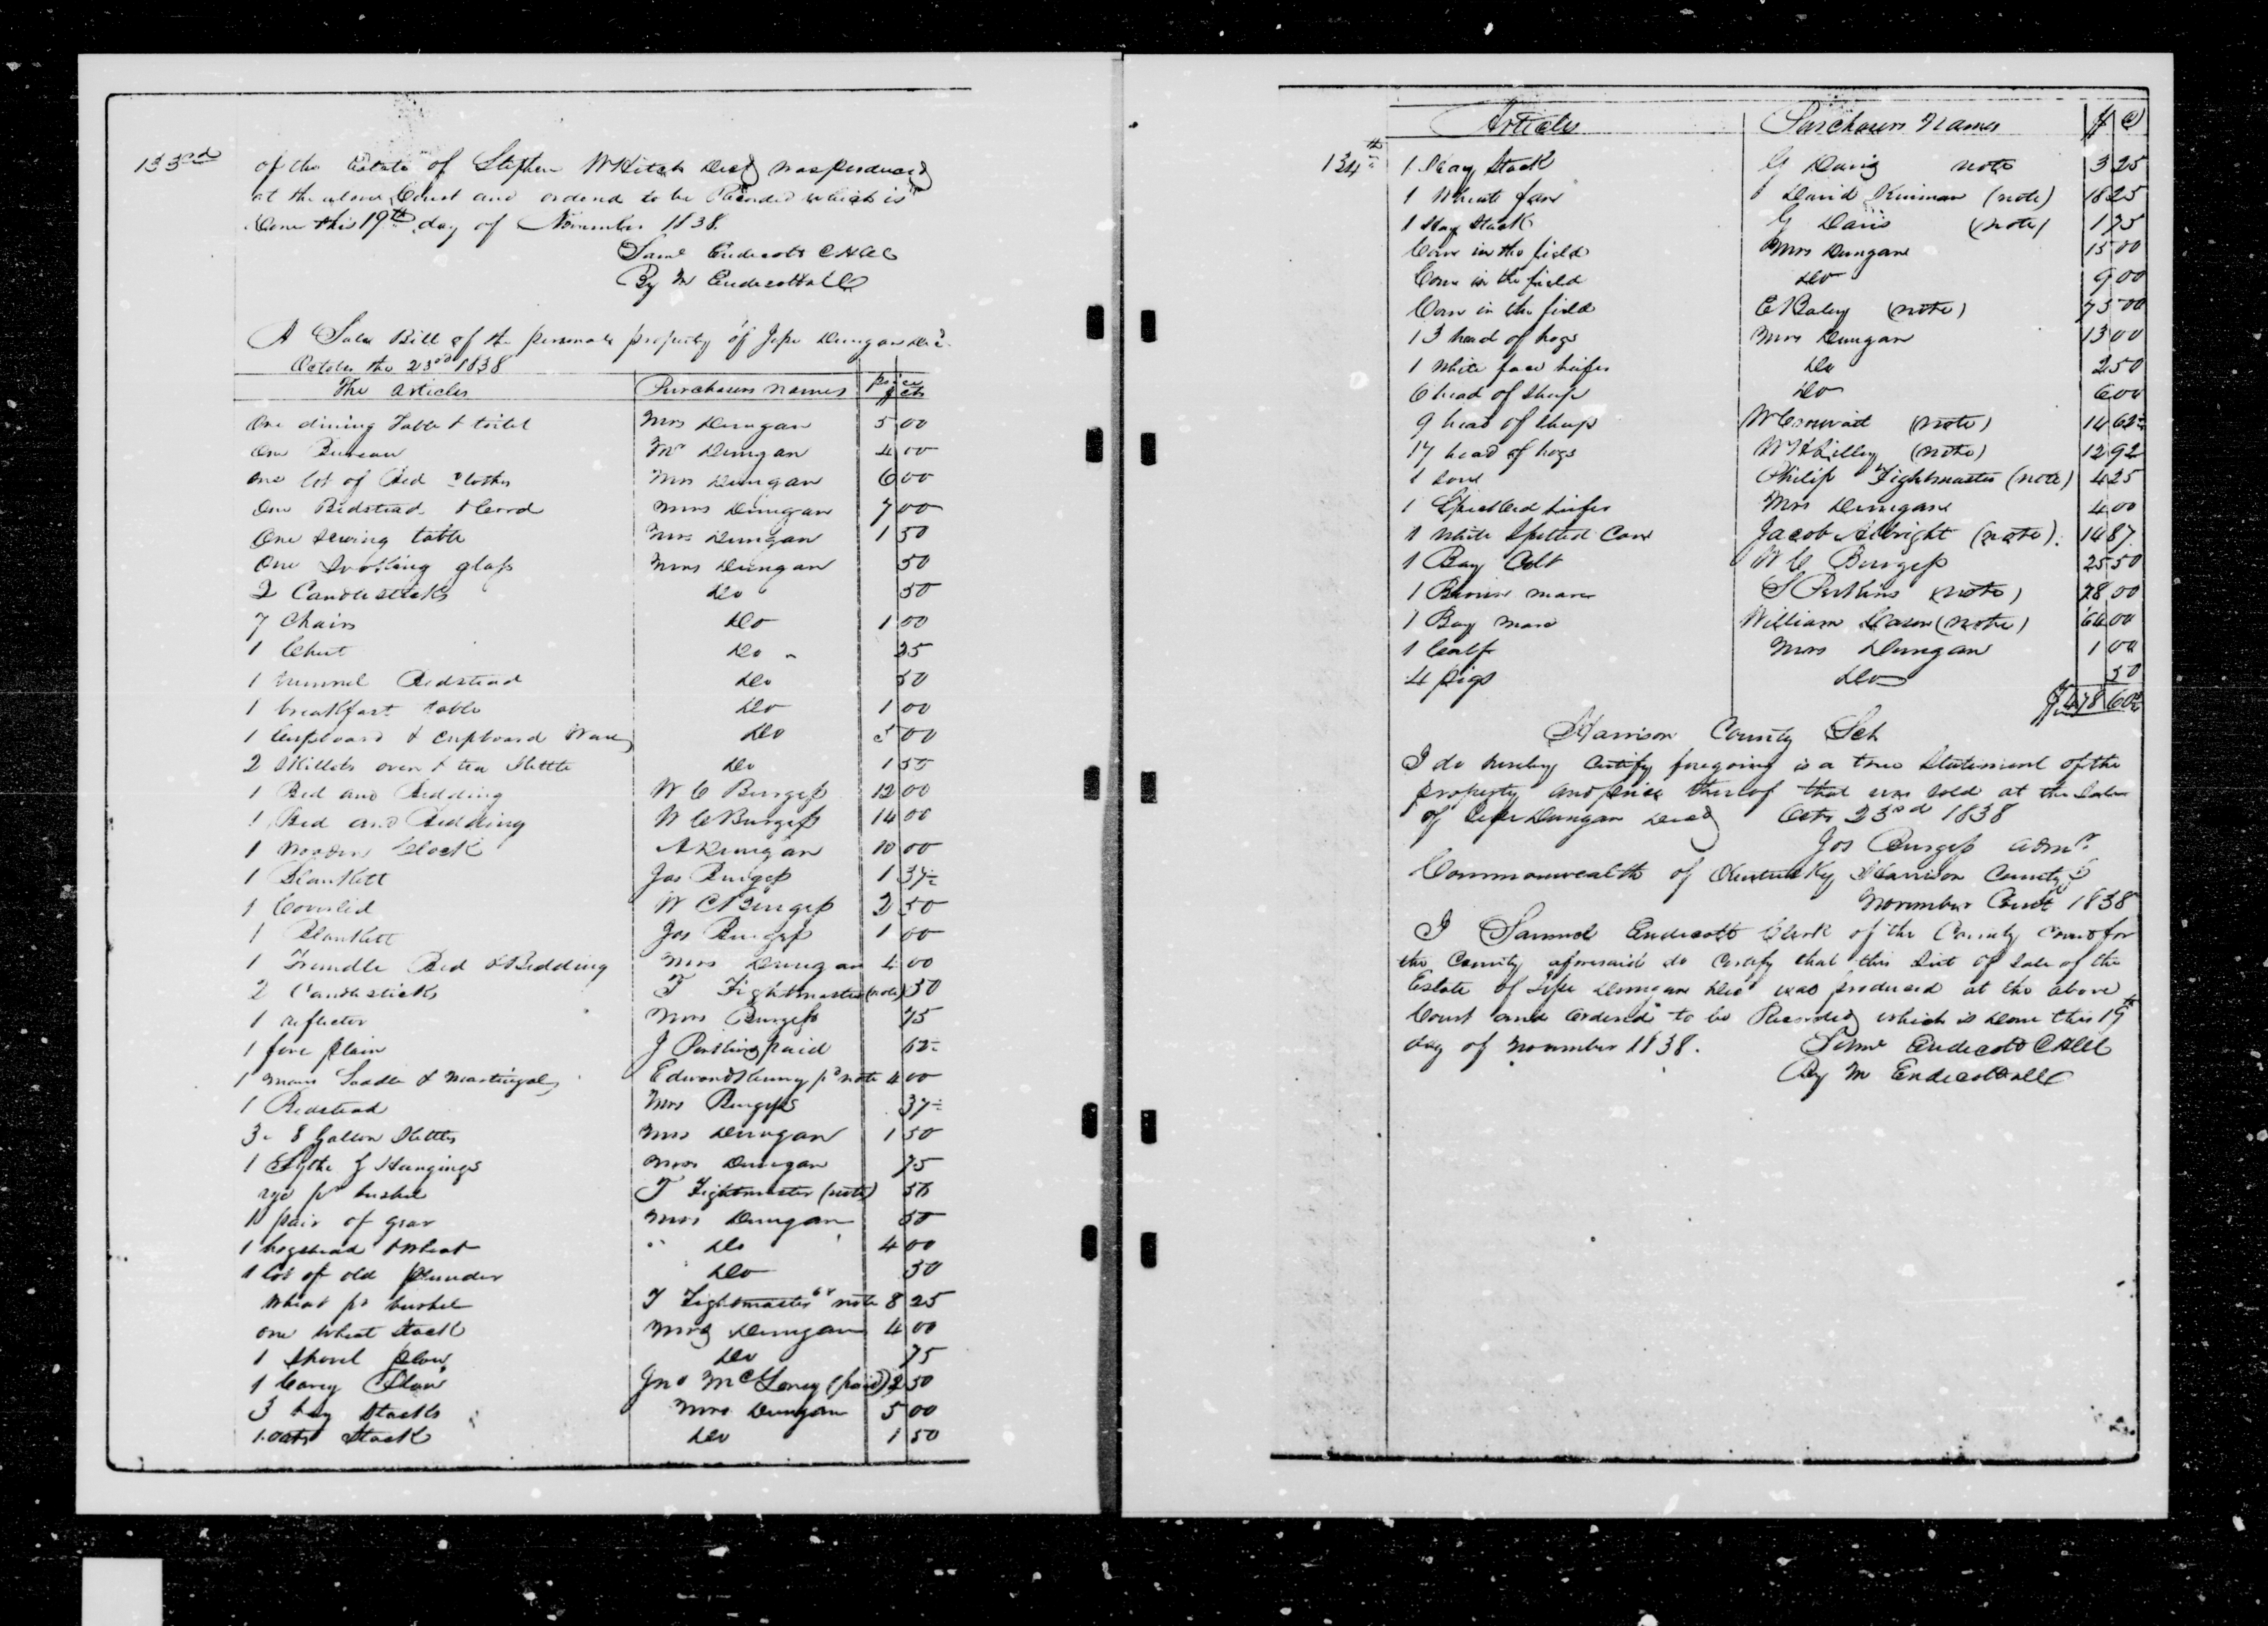 133rd
of the Estate of Stephen W Hitch Decd was produced
at the above Court and ordered to be Recorded which is
Done this 19th day of November 1838.
Saml Endicott CHCC
By M Endicott DC
A Sale Bill of the personal property of Jesse Dungan Decd
October the 23rd 1838
The articles Purchasers names price $ cts
One dining Table & toilet Mrs Dungan 5 00
One Bureau Mrs Dungan 4 00
one lot of Bed Clothes Mrs Dungan 6 00
One Bedstead & Cord Mrs Dungan 7 00
One sewing table Mrs Dungan 1 50
One Looking glass Mrs Dungan 50
2 Candlesticks Do 50
7 Chairs Do 1 00
1 Chest Do 25
1 Bedstead Do 50
1 breakfast table Do 1 00
1 Cupboard & Cupboard Ware Do 5 00
2 Skillets oven & tea Kettle Do 1 50
1 Bed and Bedding W C Burgess 12 00
1 Bed and Bedding W C Burgess 14 00
1 Wooden Clock A Dungan 10 00
1 Blankett Jas Burgess 1 37½
1 Coverlid W C Burgess 2 50
1 Blankett Jas Burgess 1 00
1 Trundle Bed & Bedding Mrs Dungan 4 00
2 Candlesticks T Fightmaster (note) 50
1 reflector Mrs Burgess 75
1 fore plain J paid 62½
1 mans Saddle & Martingales Edward pd note 4 00
1 Bedstead Mrs Burgess 37½
3 8 Gallon Kettles Mrs Dungan 1 50
1 Sythe & Hangings Mrs Dungan 75
rye pr bushel T Fightmaster (note) 56
1 pair of gear Mrs Dungan 50
1 hogshead & Wheat " Do 4 00
1 lot of old plunder Do 50
Wheat pr bushel T Fightmaster note 8 25
one Wheat Stack Mrs Dungan 4 00
1 Shovel plow Do 75
1 Carey Plow Jno McLoney (paid) 2 50
3 hay Stacks Mrs Dungan 5 00
1 oats Stack Do 1 50
Articles Purchasers Names $ C
134th
1 Hay Stack G Davis note 3 25
1 Wheat fan David Kinman (note) 18 25
1 Hay Stack G Davis (note) 1 75
Corn in the field Mrs Dungan 15 00
Corn in the field Do 9 00
Corn in the field E Baley (note) 75 00
13 head of hogs Mrs Dungan 13 00
1 White face heifer Do 2 50
6 head of Sheep Do 6 00
9 head of Sheep W (note) 14 62½
17 head of hogs W (note) 12 92
1 Sow Philip Fightmaster (note) 4 25
1 Speckled heifer Mrs Dungan 4 00
1 White Spotted Cow Jacob Albright (note) 14 87
1 Bay Colt W C Burgess 25 50
1 Brown mare S Perkins (note) 78 00
1 Bay mare William (note) 64 00
1 Calf Mrs Dungan 1 00
4 pigs Do 50
$478 60½
Harrison County Sct
I do hereby Certify foregoing is a true Statement of the
property and price thereof that was sold at the Sale
of Jesse Dungan Decd Octr 23rd 1838
Jos Burgess admr
Commonwealth of Kentucky Harrison County
November Court 1838
I Samuel Endicott Clerk of the County Court for
the County aforesaid do Certify that this List of Sale of the
Estate of Jesse Dungan Decd was produced at the above
Court and ordered to be Recorded which is Done this 19th
day of November 1838. Saml Endicott CHCC
By M Endicott DC